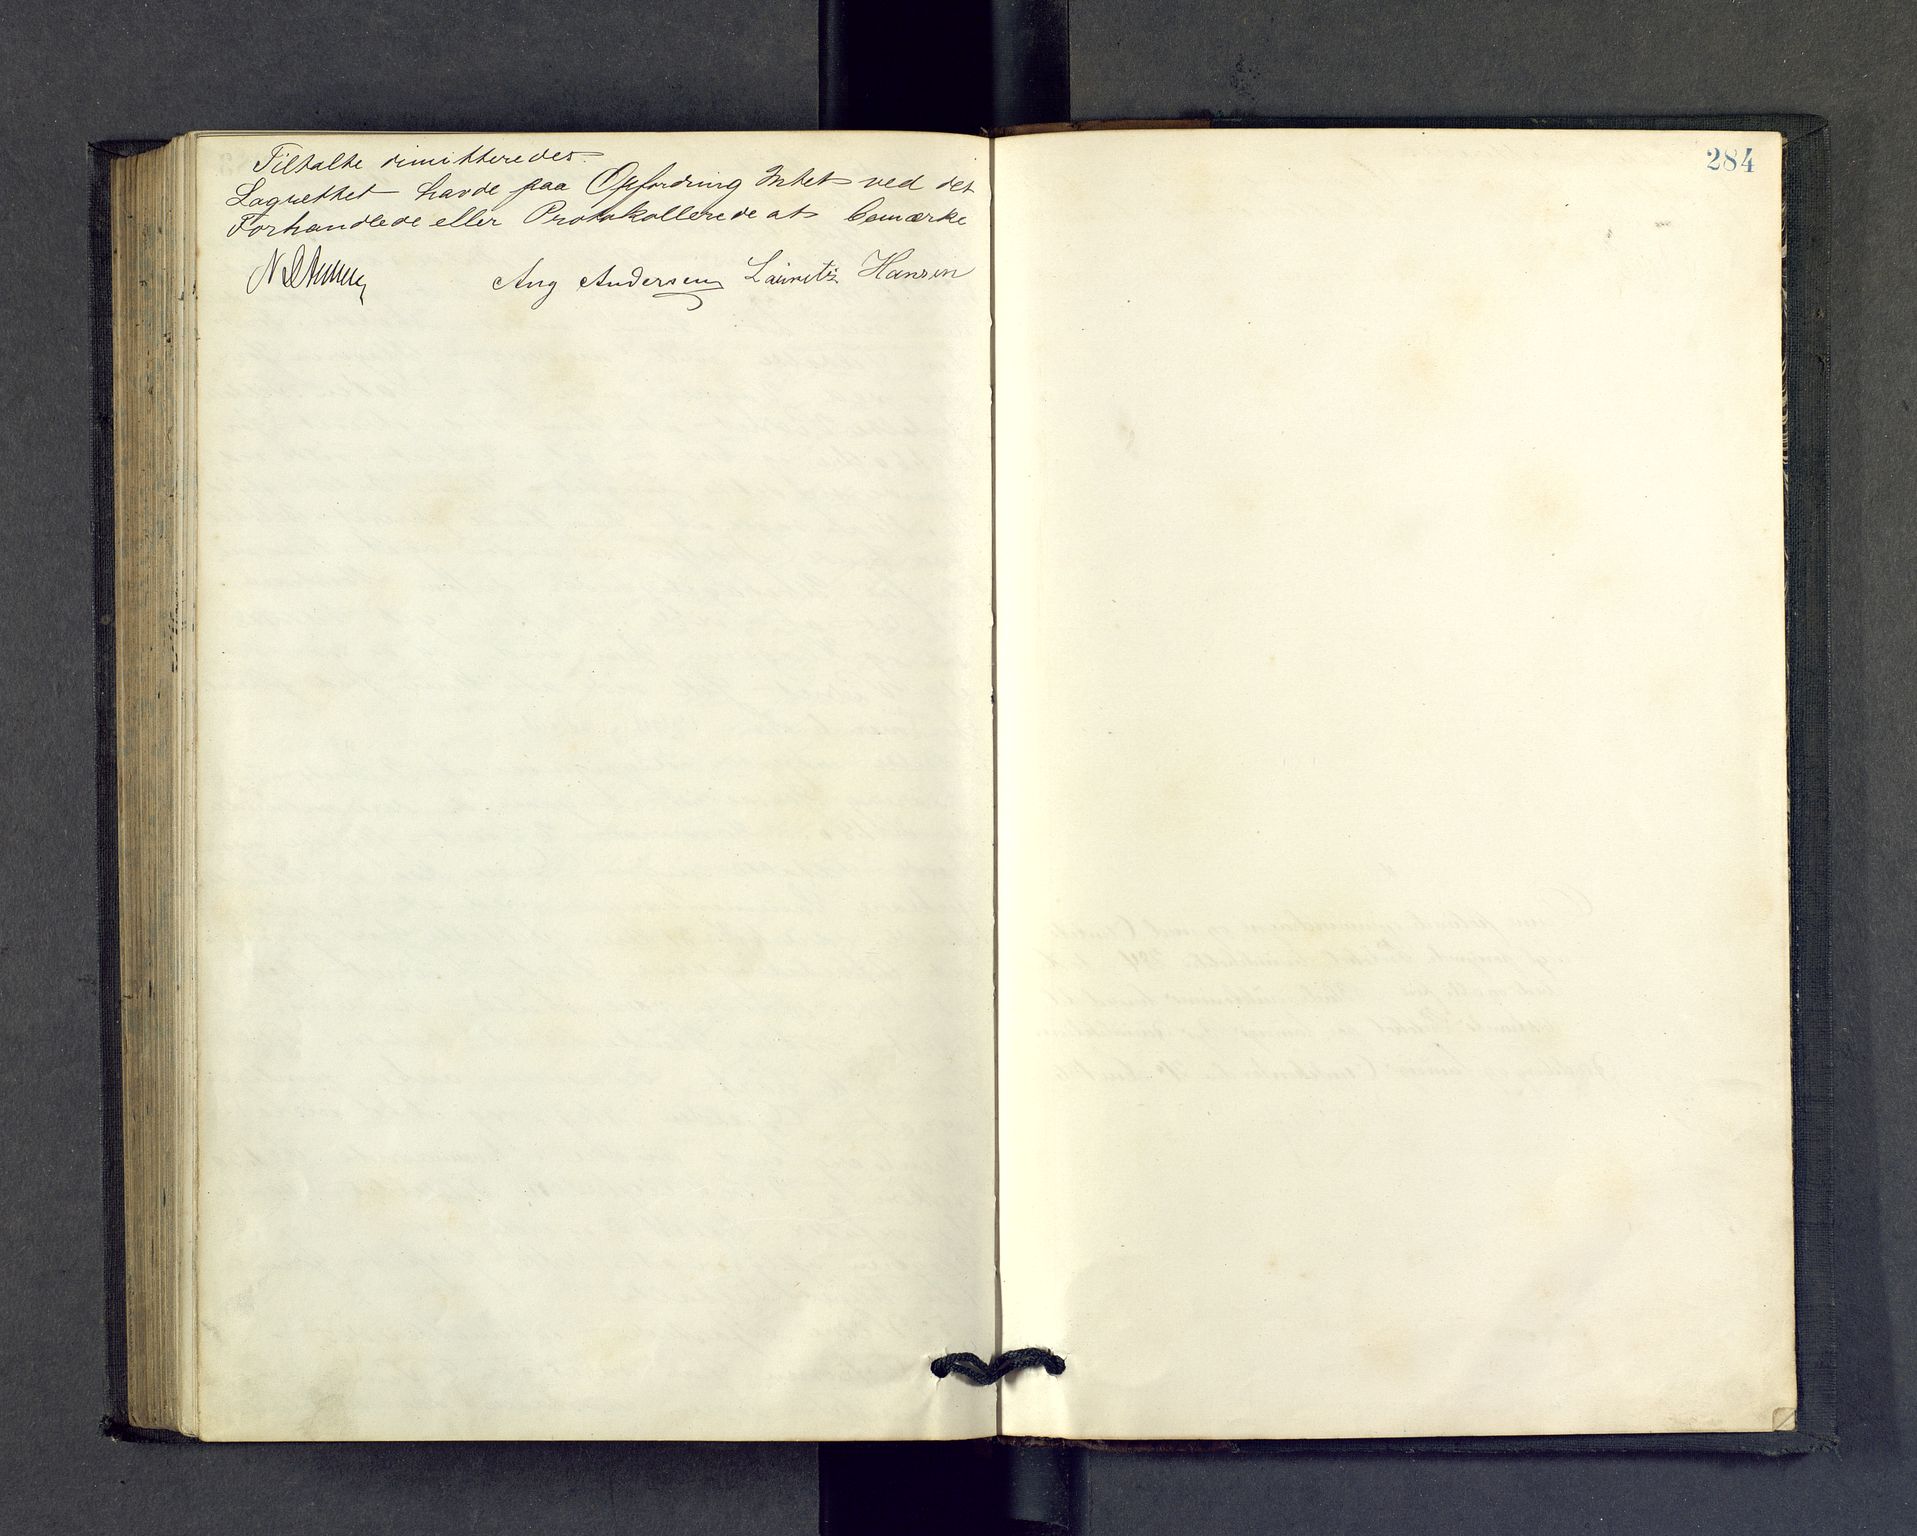 Tiltalte dimitteredes.
Lagrettet havde paa Opfordring Intet ved det
Forhandlede eller Protokollerede at bemærke
Aug Andersen Lauritz Hansen
284